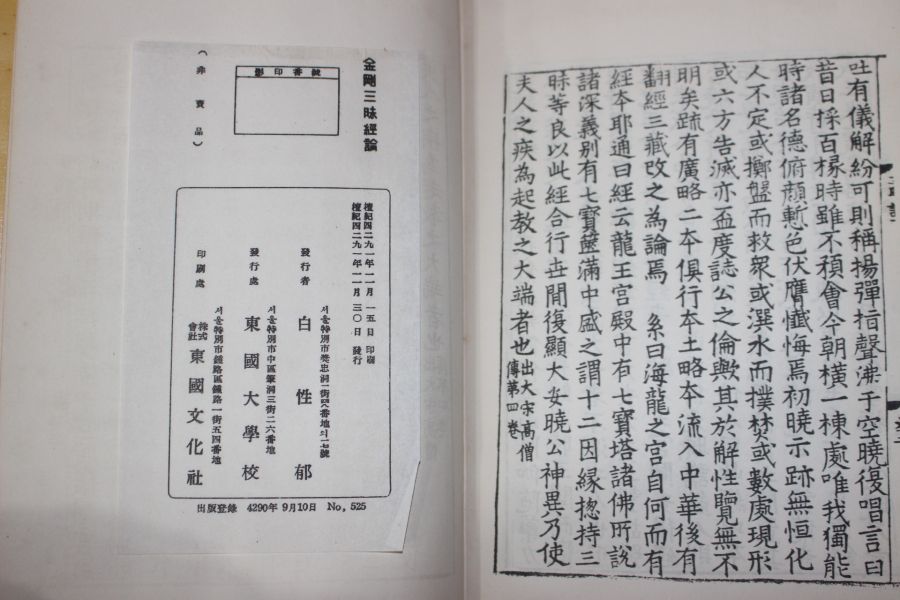 吐有儀解紛可則稱揚彈指聲沸于空曉復唱言曰
昔日採百椽時雖不預會今朝橫一棟處唯我獨能
時諸名德俯顔慙色伏膺懺悔焉初曉示跡無恒化
人不定或擲盤而救衆或潠水而撲焚或數處現形
或六方告滅亦盃度誌公之倫歟其於解性覽無不
明矣疏有廣略二本俱行本土略本流入中華後有
翻經三藏改之為論焉 系曰海龍之宮自何而有
經本耶通曰經云龍王宮殿中有七寶塔諸佛所說
諸深義别有七寶篋滿中盛之謂十二因緣揔持三
昧等良以此經合行世間復顯大安曉公神異乃使
夫人之疾為起教之大端者也 出大宋高僧
傳第四卷
金剛三昧經論
影印番號
(非賣品)
檀紀四二九一年一一月一五日 印刷
檀紀四二九一年一一月三〇日 發行
서울特別市奬忠洞一街
番地의一七號
發行者 白性郁
서울特別市中區筆洞三街二六番地
發行處 東國大學校
서울特別市鍾路區鍾路一街五四番地
印刷處 株式會社 東國文化社
出版登錄 4290年 9月10日 No, 525